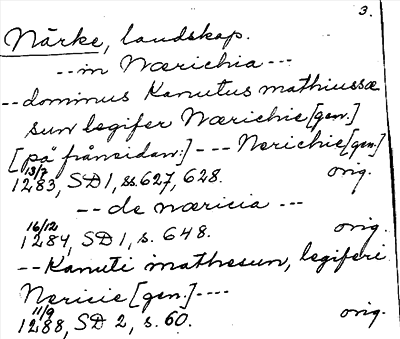 3.
Närke, landskap.
-- in Nærichia ---
-- dominus Kanutus mathiussæ
sun legifer Nærichie [gen.]
[på frånsidan:] --- Nerichie [gen.]
13/7 1283, SD 1, ss. 627, 628. orig.
-- de næricia ---
16/12 1284, SD 1, s. 648. orig.
-- Kanuti mathesun, legiferi
Nericie [gen.] ----
11/9 1288, SD 2, s. 60. orig.